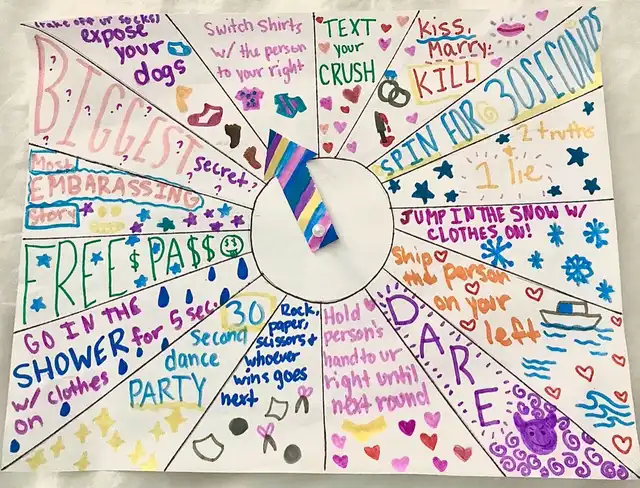 (take off ur socks)
expose
your
dogs
Switch Shirts
w/ the person
to your right
TEXT
your
CRUSH
Kiss,
Marry,
KILL
SPIN FOR 30 SECONDS
2 truths
+
1 lie
JUMP IN THE SNOW W/
CLOTHES ON!
Ship
the person
on your
left
DARE
Hold
person's
hand to ur
right until
next round
Rock,
paper,
scissors +
whoever
wins goes
next
30
Second
dance
PARTY
GO IN THE
SHOWER for 5 sec.
w/ clothes
on
FREE PA$$
Most
EMBARASSING
Story
BIGGEST
secret